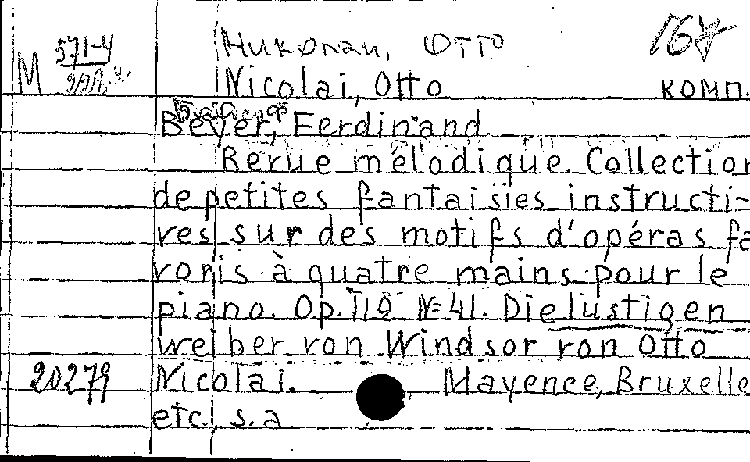 Николаи, Отто 167
M 571-4
Nicolai, Otto комп.
Beyer, Ferdinand
Revue mélodique. Collection
de petites fantaisies instructi-
ves sur des motifs d'opéras fa
voris à quatre mains pour le
piano. Op. 112 № 41. Die lustigen
weiber von Windsor von Otto
20279 Nicolai. Mayence, Bruxelle
etc., s.a